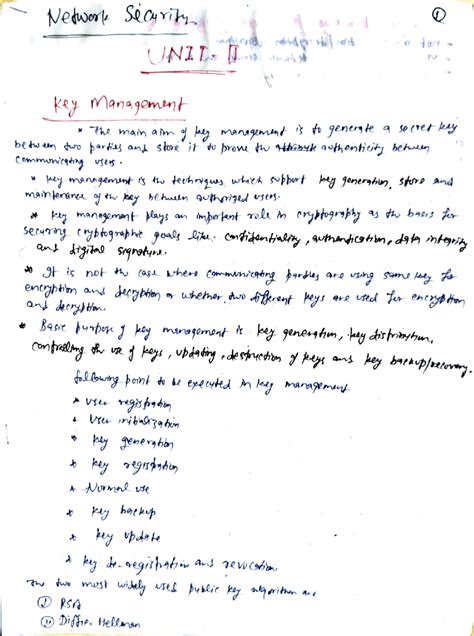 Network Security
①
UNIT-II
Key Management
* The main aim of key management is to generate a secret key
between two parties and store it to prove the authenticity between
communicating users.
* Key management is the techniques which support key generation, store and
maintenance of the key between authorized users.
* Key management plays an important role in cryptography as the basis for
securing cryptographic goals like confidentiality, authentication, data integrity
and digital signature.
* It is not the case where communicating parties are using same key for
encryption and decryption or whether two different keys are used for encryption
and decryption.
* Basic purpose of key management is key generation, key distribution,
controlling the use of keys, updating, destruction of keys and key backup/recovery.
following point to be executed in key management
* User registration
* User initialization
* Key generation
* Key registration
* Normal use
* Key backup
* Key update
* Key de-registration and revocation.
The two most widely used public key algorithm are
① RSA
② Diffie-Hellman